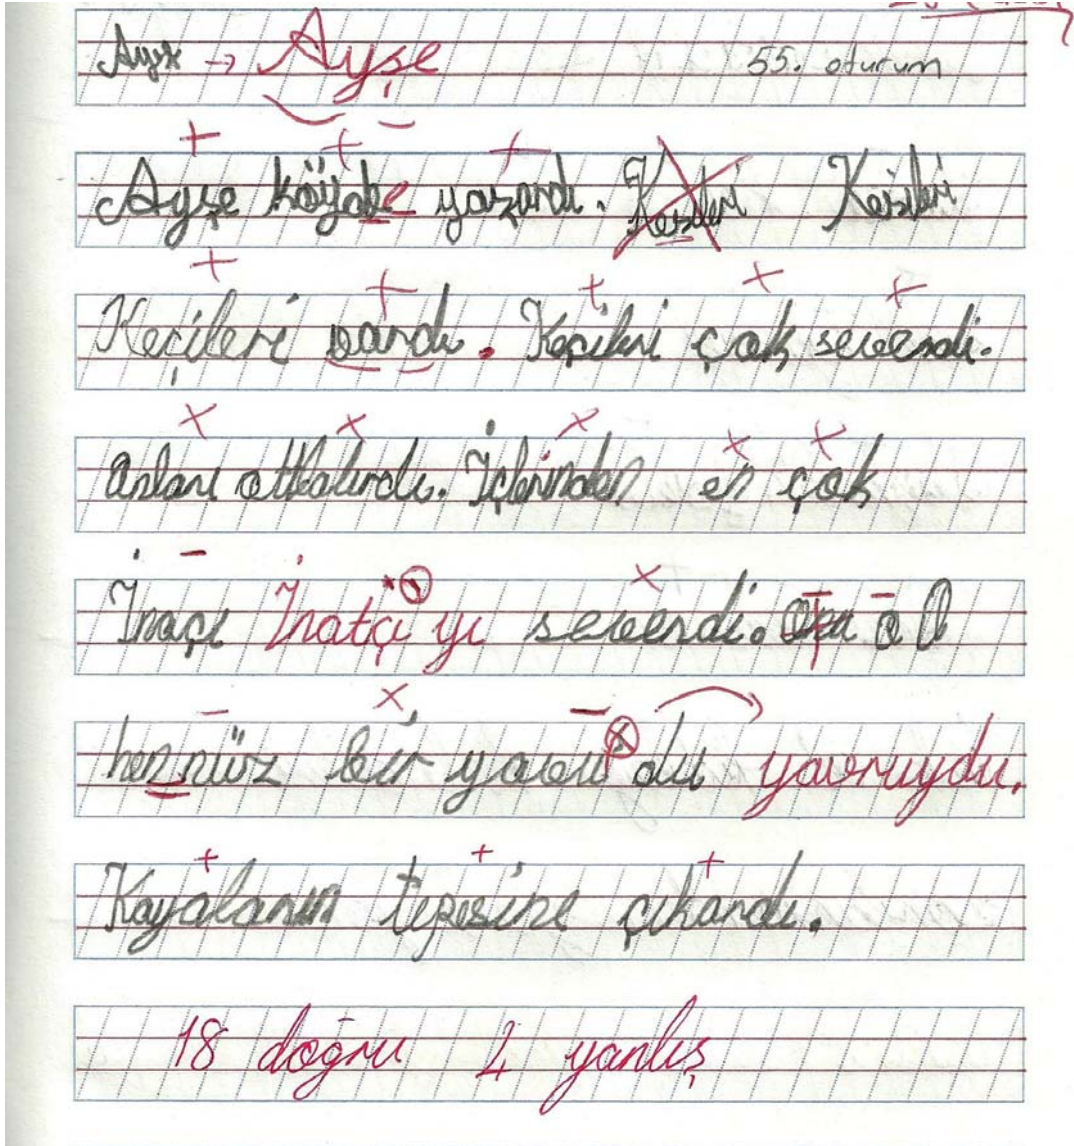 Ayşe → Ayşe 55. oturum
Ayşe köyde yaşardı. Kesileri Kesileri
Keçileri vardı. Keçileri çok severdi.
Onları otlatırdı. İçlerinden en çok
İnaçı İnatçı yı severdi. O
hennüz bir yavu du yavruydu.
Kayaların tepesine çıkardı.
18 doğru 4 yanlış